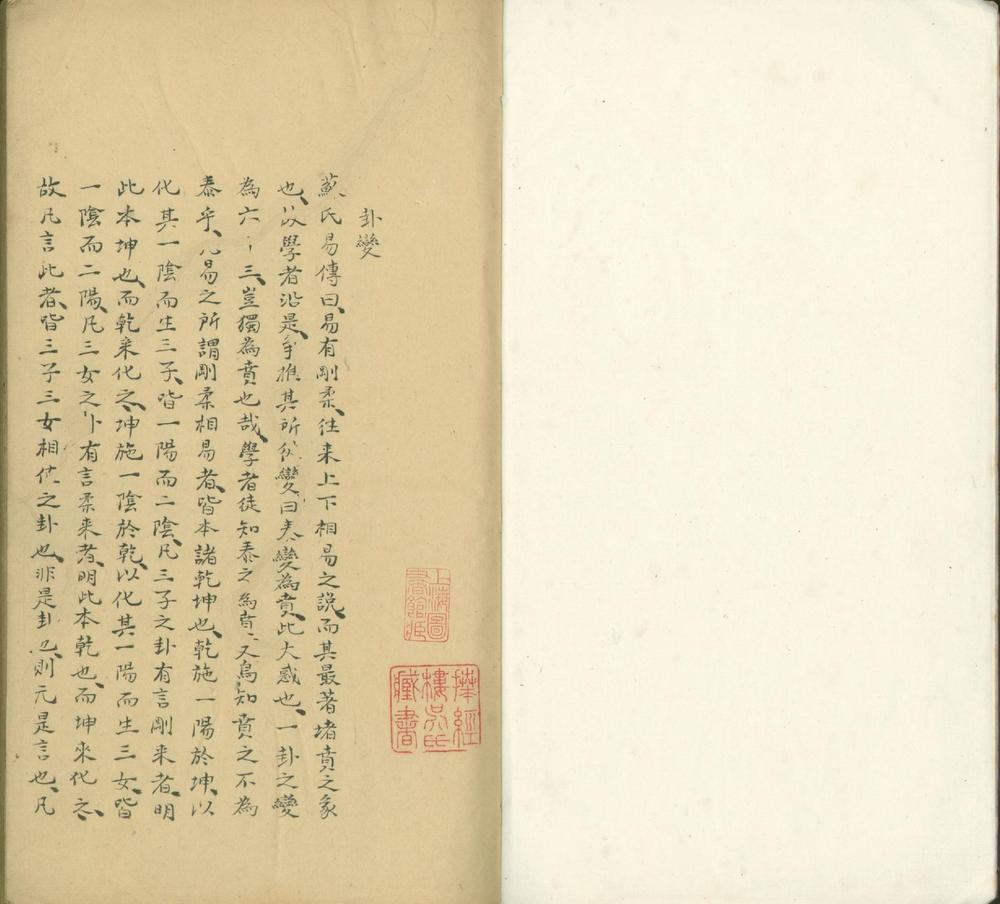 卦變
蘇氏易傳曰易有剛柔往来上下相易之説而其最著者賁之彖
也故學者沿是爭推其所從變曰泰變為賁此大惑也一卦之變
為六十三豈獨為賁也哉學者徒知泰之為賁又烏知賁之不為
泰乎凡易之所謂剛柔相易者皆本諸乾坤也乾施一陽於坤以
化其一陰而生三子皆一陽而二陰凡三子之卦有言剛来者明
此本坤也而乾来化之坤施一陰於乾以化其一陽而生三女皆
一陰而二陽凡三女之卦有言柔来者明此本乾也而坤來化之
故凡言此者皆三子三女相值之卦也非是卦也則无是言也凡
上海圖書館藏
揅經樓吳氏藏書